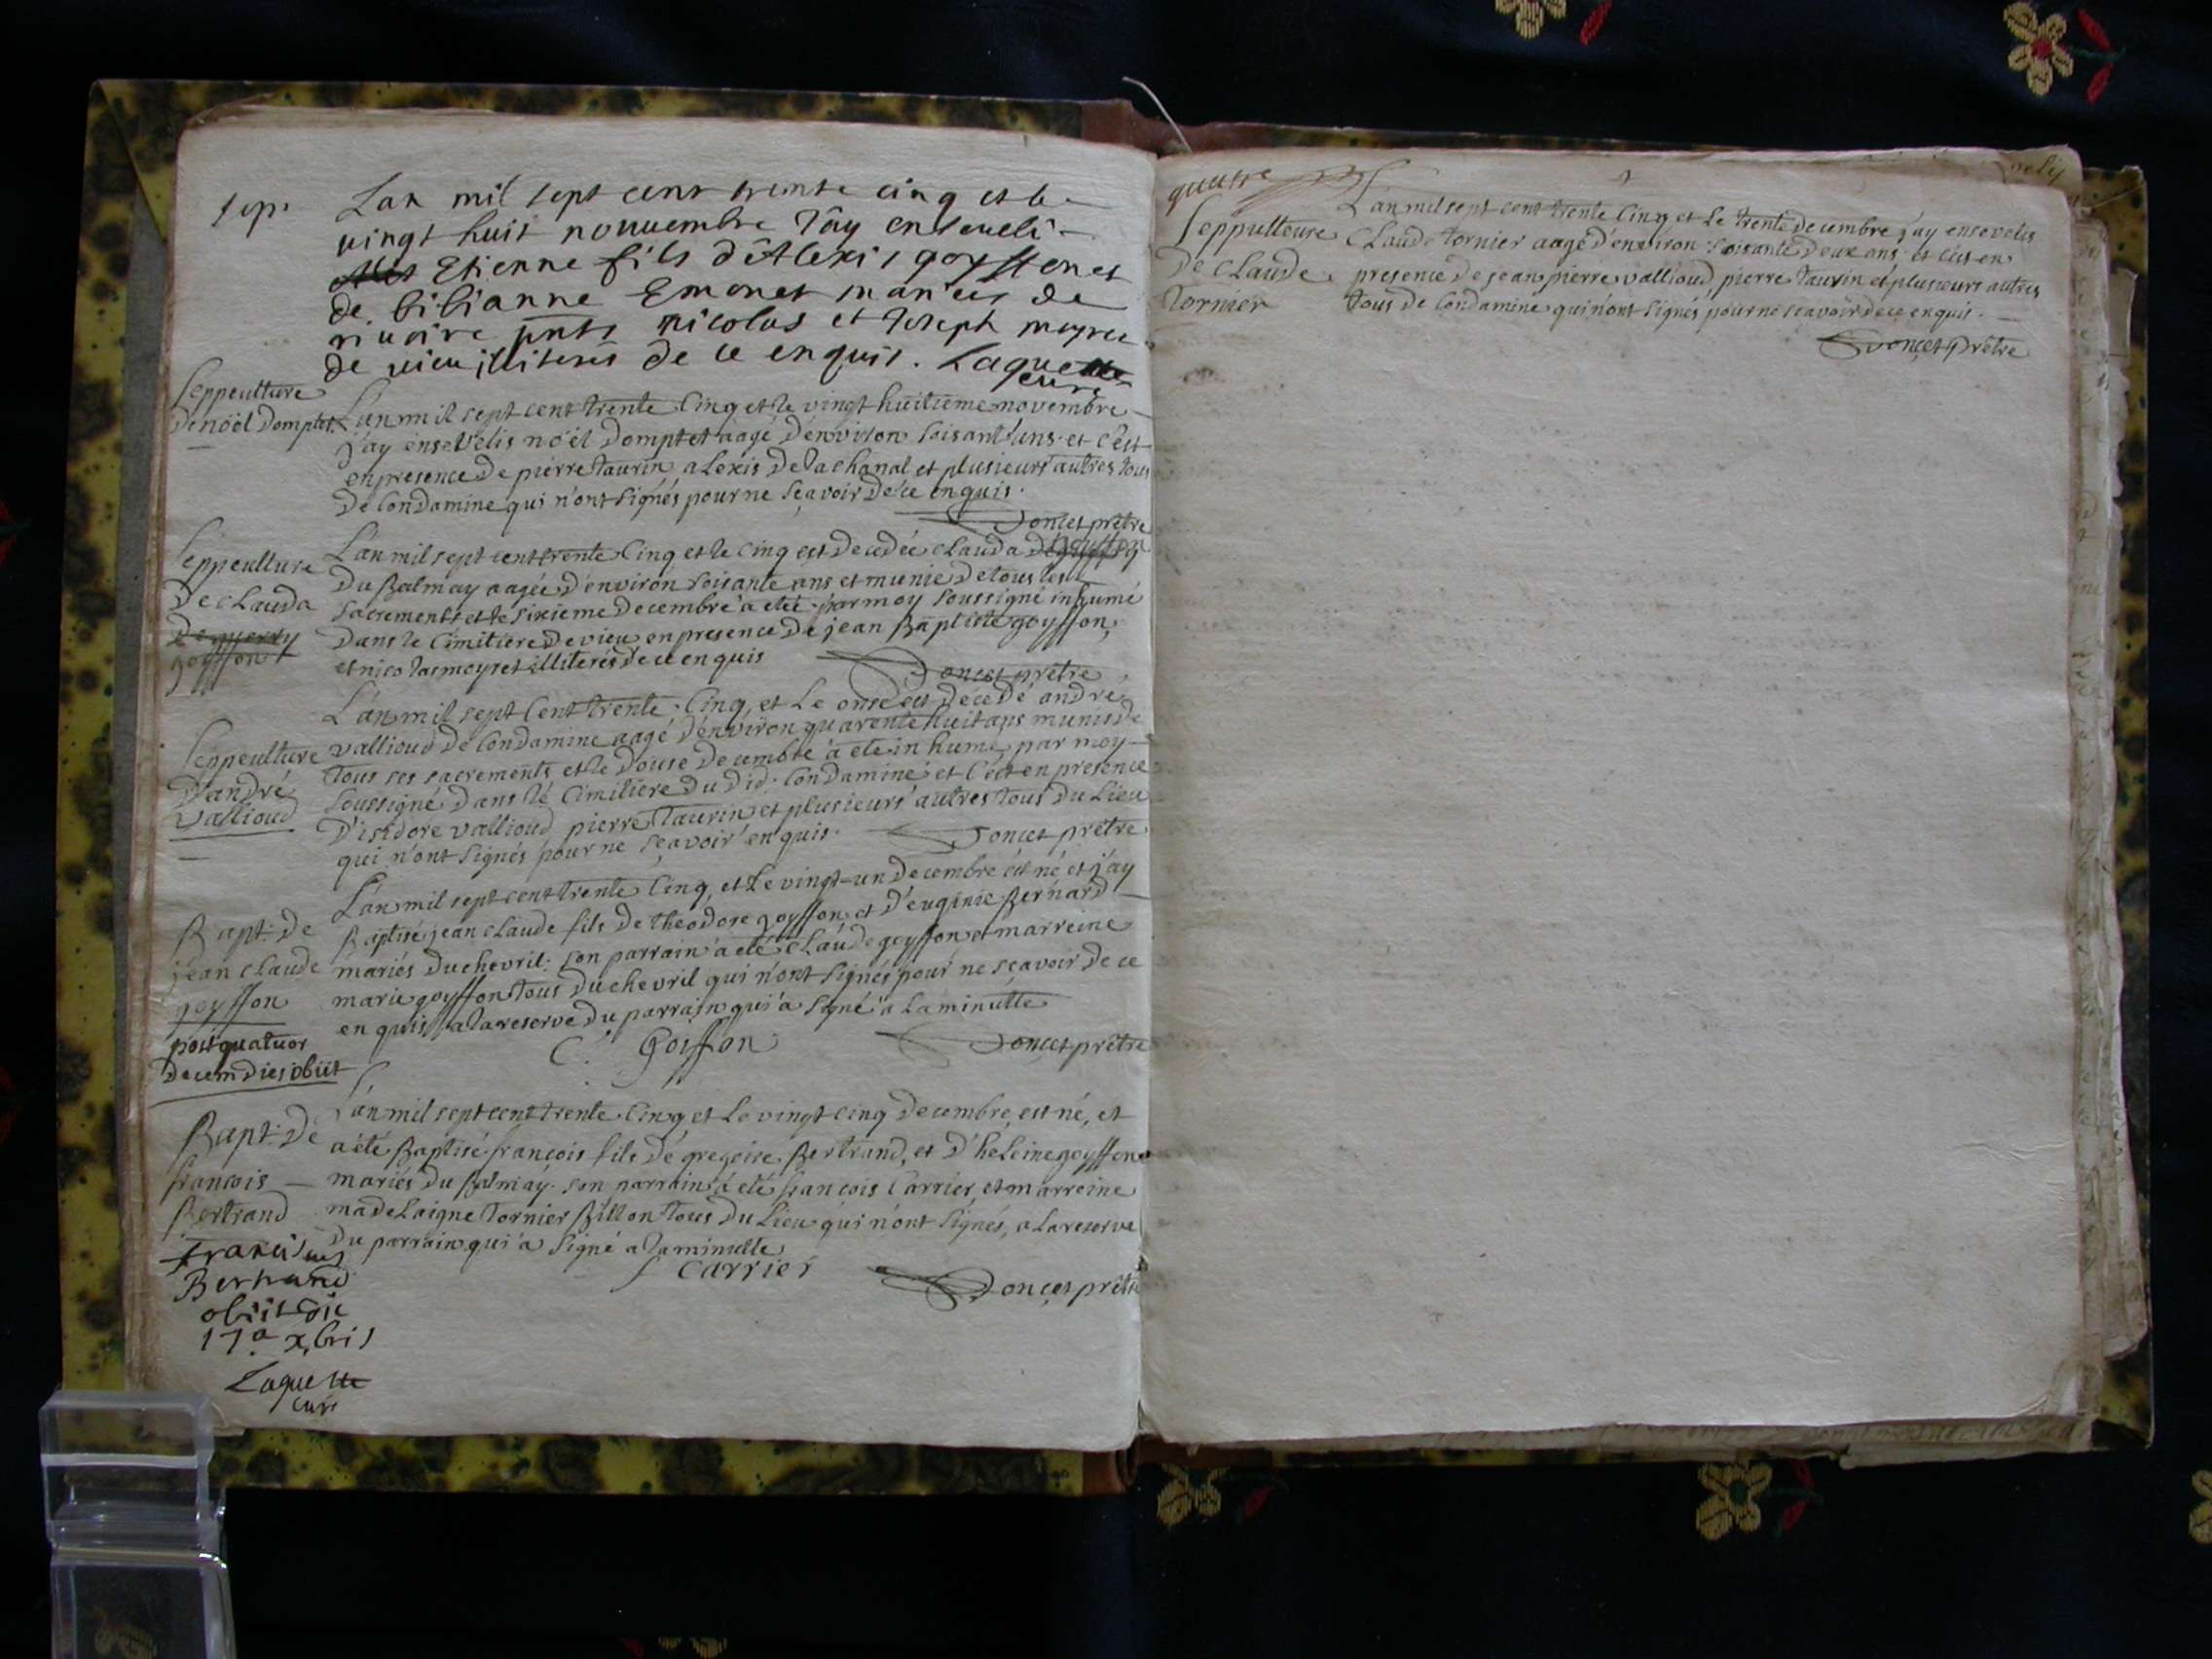 sep.
Lan mil sept cent trente cinq et le
vingt huit nouuembre Jây enseueli
Etienne fils d'Alexis goyffon et
de bibianne Emonet mariés de
riuoire pnts nicolas et Joseph moyret
de vieu illiterés de ce enquis. Laquette
curé
Seppeulture
de noël Domptet
L'an mil sept cent trente Cinq et le vingt huitieme novembre
j'ay ensevelis noël Domptet aagé d'environ soisant'ans. et c'est
en presence de pierre taurin alexis de la chanal et plusieurs autres tous
de Condamine qui n'ont signés pour ne sçavoir de ce enquis.
Doncet prêtre
Seppeulture
de clauda
goyffon
L'an mil sept cent trente Cinq et le cinq est decedée clauda goyffon
du Balmay aagée d'environ soisante ans et munie de tous les
sacrements et le sixieme decembre a etée par moy soussigné inhumé
dans le Cimitiere de vieu en presence de jean Baptiste goyffon,
et nicolas moyret illiterés de ce enquis
Doncet prêtre
Seppeulture
d'andré
vallioud
L'an mil sept Cent trente Cinq, et Le onse est décedé andré
vallioud de Condamine aagé d'environ quarente huit ans munis de
tous ses sacrements et le douse decembre a eté inhumé par moy
soussigné dans le Cimitiere du did. Condamine et c'est en presence
d'isidore vallioud pierre taurin et plusieurs autres tous du Lieu
qui n'ont signés pour ne sçavoir enquis.
Doncet prêtre
Bapt: de
jean claude
goyffon
post quatuor
decem dies obiit
L'an mil sept cent trente Cinq, et Le vingt-un decembre est né et j'ay
Baptisé jean claude fils de theodore goyffon et d'euginie Bernard
mariés du chevril: son parrain a eté claude goyffon et marreine
marie goyffon tous du chevril qui n'ont signés pour ne sçavoir de ce
enquis, a la reserve du parrain qui a signé a la minutte
C. Goiffon
Doncet prêtre
Bapt: de
françois
Bertrand
L'an mil sept cent trente Cinq et Le vingt cinq decembre, est né, et
a été Baptisé françois fils de gregoire Bertrand, et d'heleine goyffon
mariés du Balmay. son parrain a eté françois Carrier, et marreine
madelaigne tornier Billon tous du Lieu qui n'ont signés, a la reserve
du parrain qui a signé a la minutte
f carrier
Doncet prêtre
Franciscus
Bertrand
obiit die
17a xbris
Laquette
curé
quatre
Seppulteure
de claude
tornier
L'an mil sept cent trente Cinq et Le trente decembre j'ay ensevelis
claude tornier aagé d'environ soisante deux ans. et c'est en
presence de jean pierre vallioud, pierre taurin et plusieurs autres
tous de Condamine qui n'ont signés pour ne sçavoir de ce enquis.
Doncet prêtre